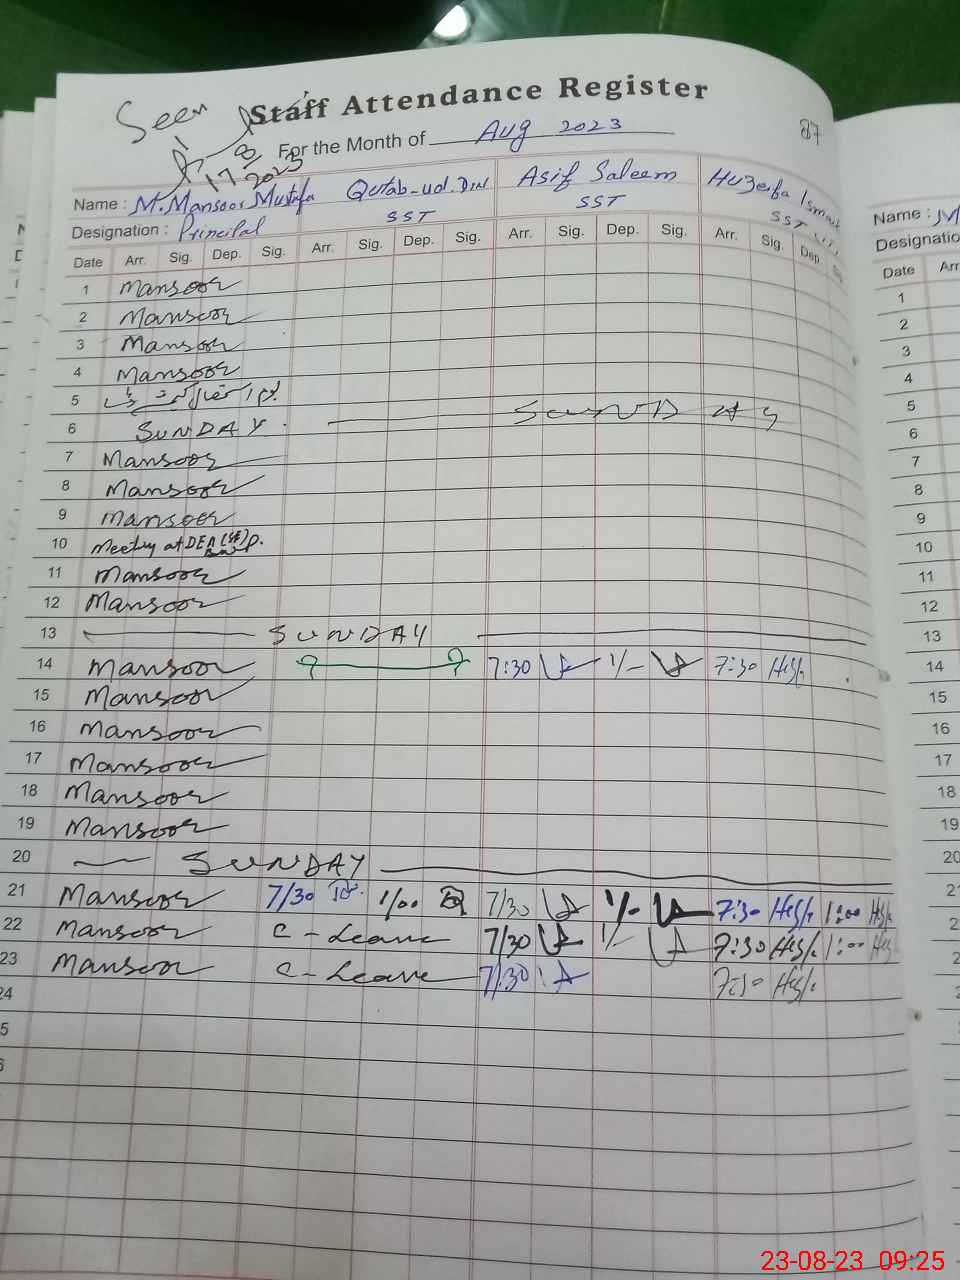 Seen
Staff Attendance Register
17/8/2023
For the Month of Aug 2023
87
Name : M. Mansoor Mustafa Qutab-ud-Din Asif Saleem Huzeifa Ismail
Designation : Principal SST SST SST
Date Arr. Sig. Dep. Sig. Arr. Sig. Dep. Sig. Arr. Sig. Dep. Sig. Arr. Sig. Dep.
1 Mansoor
2 Mansoor
3 Mansoor
4 Mansoor
5 یوم استحصال
6 SUNDAY SUNDAY
7 Mansoor
8 Mansoor
9 Mansoor
10 Meeting at DEA
11 Mansoor
12 Mansoor
13 SUNDAY
14 Mansoor 7:30 1/- 7:30
15 Mansoor
16 Mansoor
17 Mansoor
18 Mansoor
19 Mansoor
20 SUNDAY
21 Mansoor 7/30 1/00 7/30 1/- 7:30 1:00
22 Mansoor C-Leave 7/30 1/- 7:30 1:00
23 Mansoor C-Leave 7/30 7:30
24
5
6
Name : M
Designatio
Date Arr
1
2
3
4
5
6
7
8
9
10
11
12
13
14
15
16
17
18
19
20
23-08-23 09:25